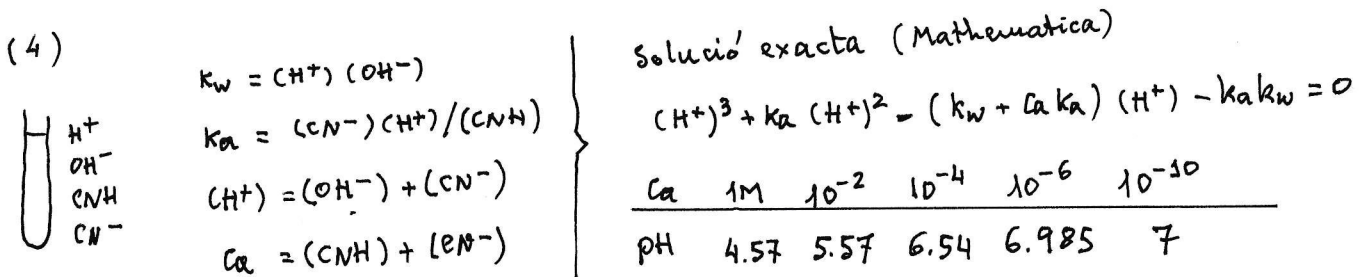 (4)
Kw = (H⁺) (OH⁻)
Ka = (CN⁻)(H⁺)/(CNH)
(H⁺) = (OH⁻) + (CN⁻)
Ca = (CNH) + (CN⁻)
H⁺
OH⁻
CNH
CN⁻
Solució exacta (Mathematica)
(H⁺)³ + Ka (H⁺)² - (Kw + Ca Ka) (H⁺) - Ka Kw = 0
Ca 1M 10⁻² 10⁻⁴ 10⁻⁶ 10⁻¹⁰
pH 4.57 5.57 6.54 6.985 7